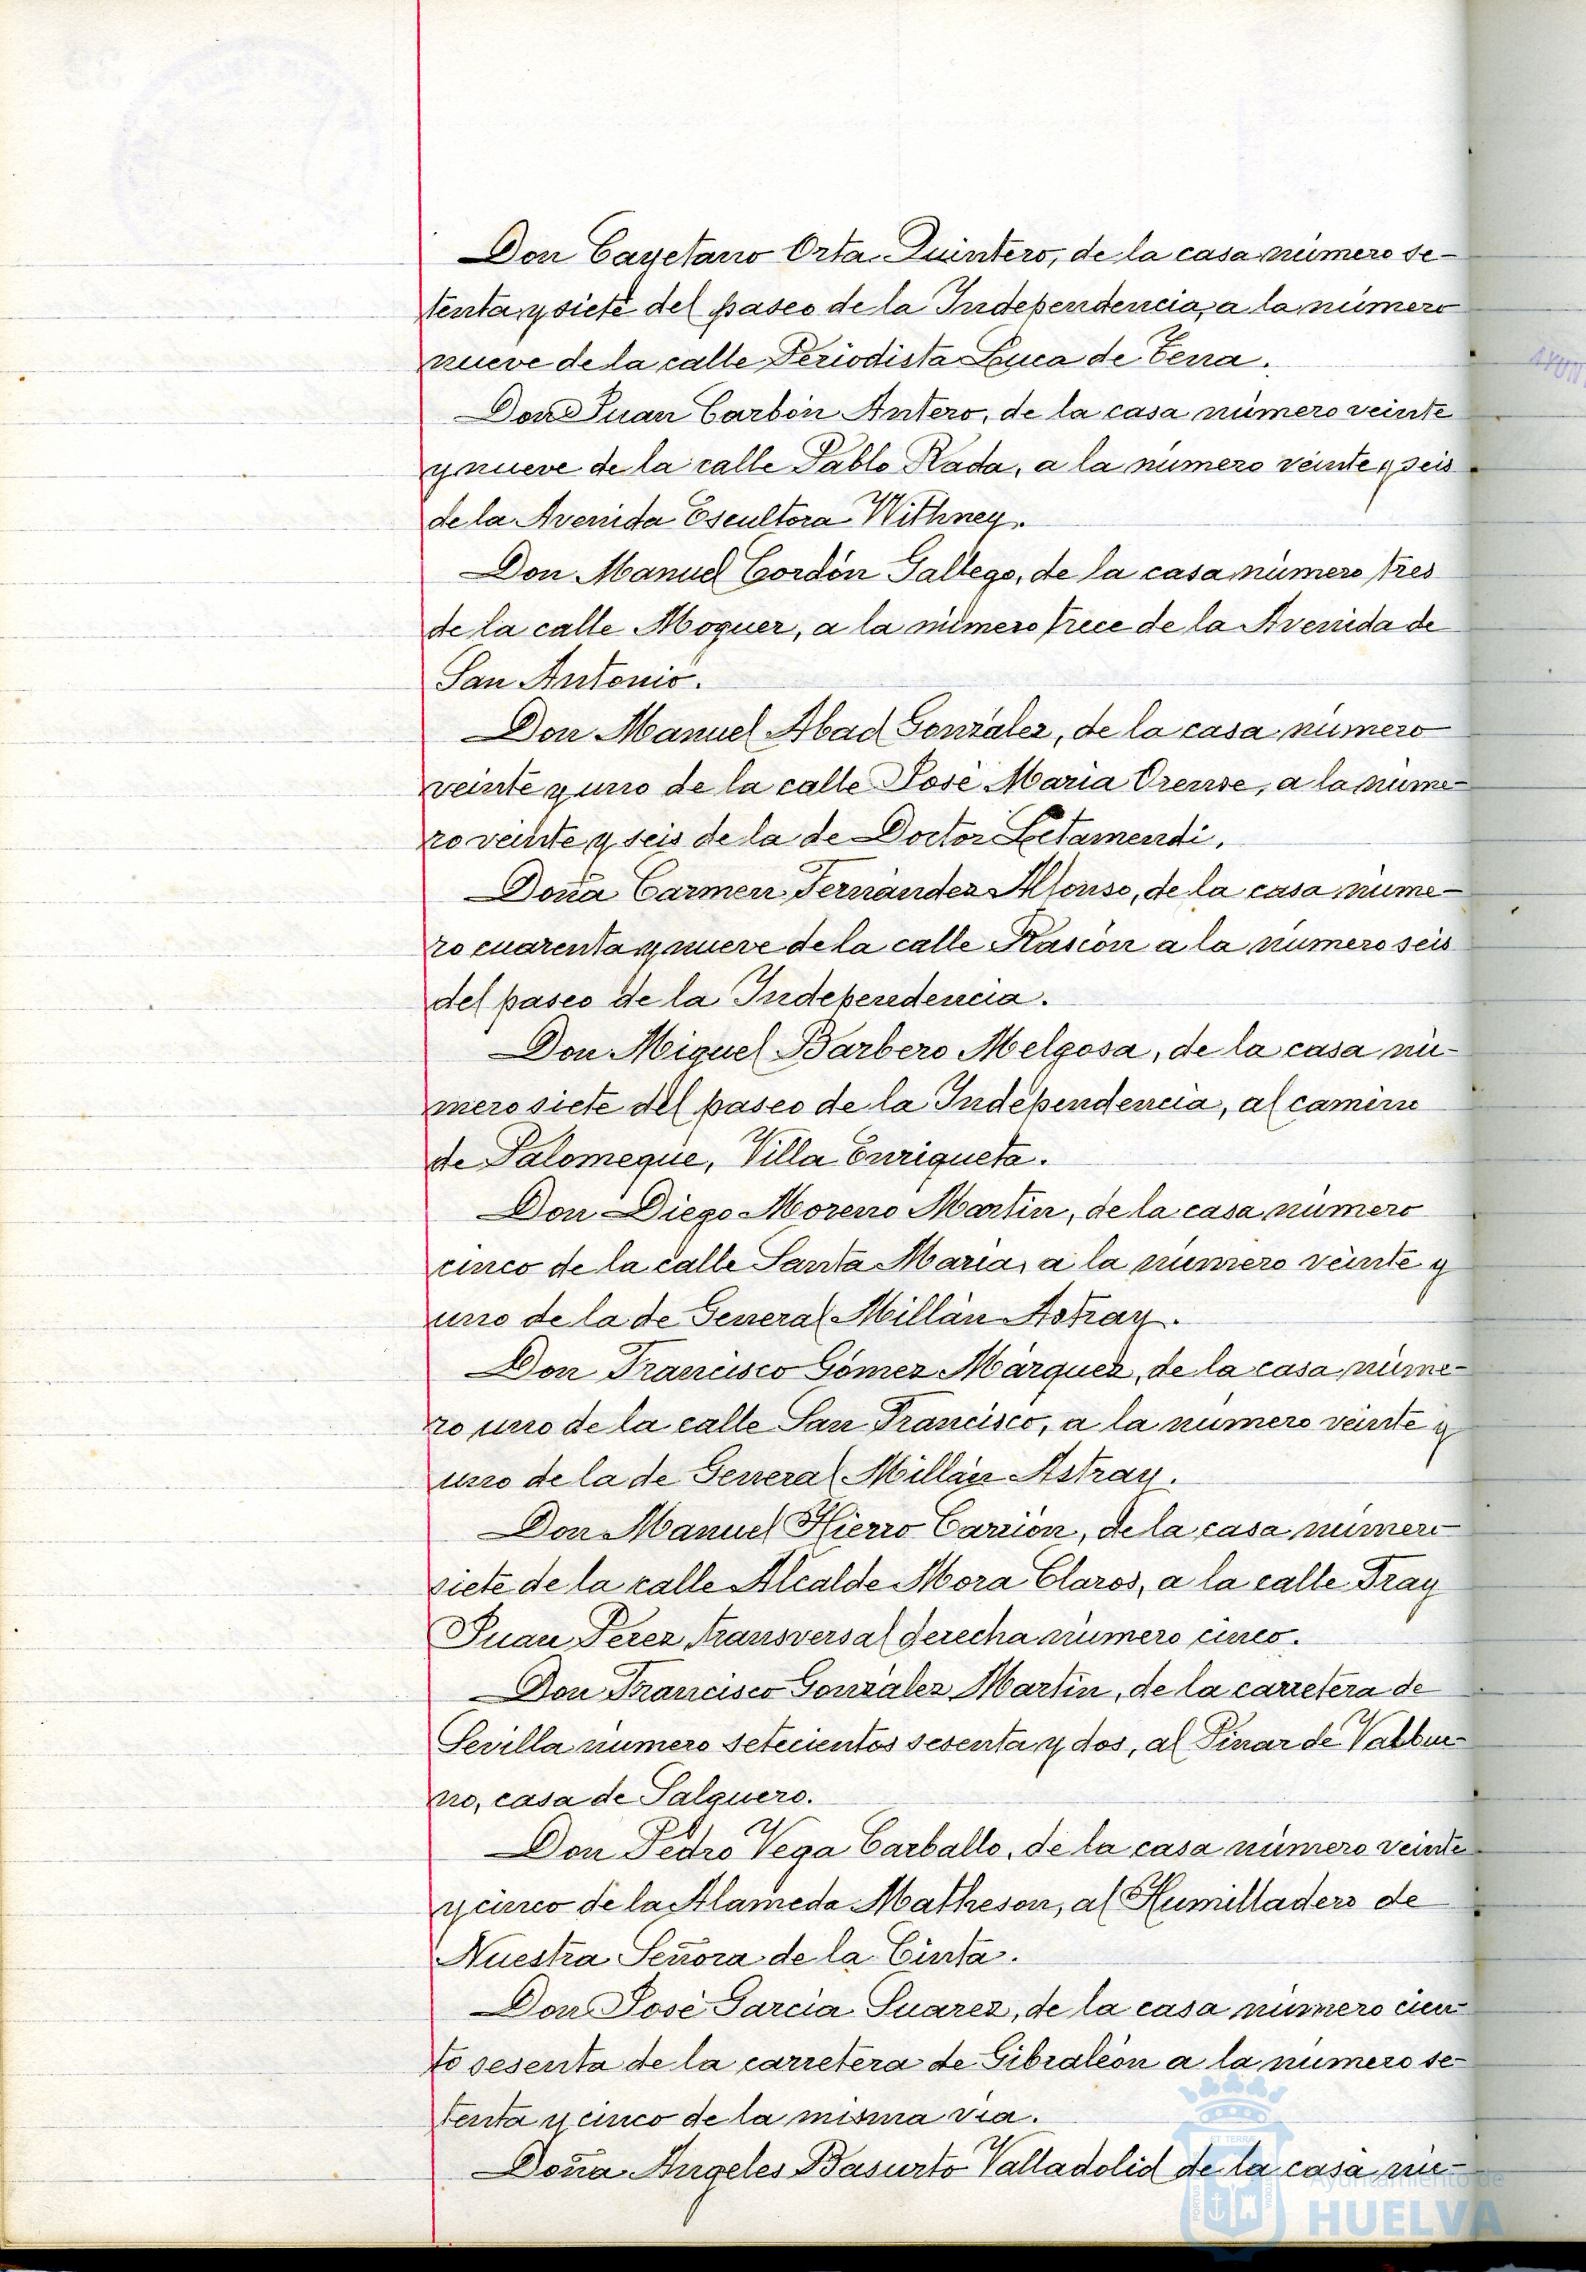 Don Cayetano Orta Quintero, de la casa número se-
tenta y siete del paseo de la Independencia, a la número
nueve de la calle Periodista Luca de Tena.
Don Juan Carbón Antero, de la casa número veinte
y nueve de la calle Pablo Rada, a la número veinte y seis
de la Avenida Escultora Withney.
Don Manuel Cordón Gallego, de la casa número tres
de la calle Moguer, a la número trece de la Avenida de
San Antonio.
Don Manuel Abad González, de la casa número
veinte y uno de la calle José María Orense, a la núme-
ro veinte y seis de la de Doctor Letamendi.
Doña Carmen Fernández Alfonso, de la casa núme-
ro cuarenta y nueve de la calle Rascón a la número seis
del paseo de la Independencia.
Don Miguel Barbero Melgosa, de la casa nú-
mero siete del paseo de la Independencia, al camino
de Palomeque, Villa Enriqueta.
Don Diego Moreno Martín, de la casa número
cinco de la calle Santa María, a la número veinte y
uno de la de General Millán Astray.
Don Francisco Gómez Márquez, de la casa núme-
ro uno de la calle San Francisco, a la número veinte y
uno de la de General Millán Astray.
Don Manuel Hierro Carrión, de la casa número
siete de la calle Alcalde Mora Claros, a la calle Fray
Juan Pérez transversal derecha número cinco.
Don Francisco González Martín, de la carretera de
Sevilla número setecientos sesenta y dos, al Pinar de Valbue-
no, casa de Salguero.
Don Pedro Vega Carballo, de la casa número veinte
y cinco de la Alameda Matheson, al Humilladero de
Nuestra Señora de la Cinta.
Don José García Suarez, de la casa número cien-
to sesenta de la carretera de Gibraleón a la número se-
tenta y cinco de la misma vía.
Doña Angeles Basurto Valladolid de la casa nú-
AYUN
Ayuntamiento de
HUELVA